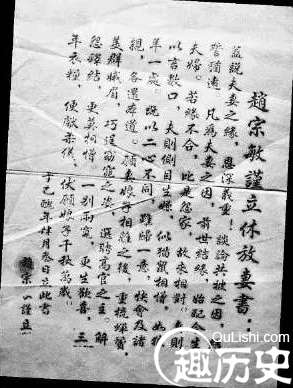 趙宗敏謹立休放妻書：
蓋說夫妻之緣，恩深義重！談論共被之因
誓彌遠。凡為夫妻之因，前世結緣，始配今生
夫婦。若緣不合，比是怨家，故來相對。妻則
以言數口，夫則側目生嫌，似貓鼠相憎，如狼
羊一處。既以二心不同，難歸一意，快會及諸
親，各還本道。願妻娘子相離之後，重梳蟬鬢，
美群娥眉，巧逞窈窕之姿，選騁高官之主。解
怨釋結，更莫相憎。一別兩寬，更生歡喜，三
年衣糧，便獻柔儀。伏願娘子千秋萬歲。
年月叁日立此書
趙宗謹立
QuLishi.com
趣历史